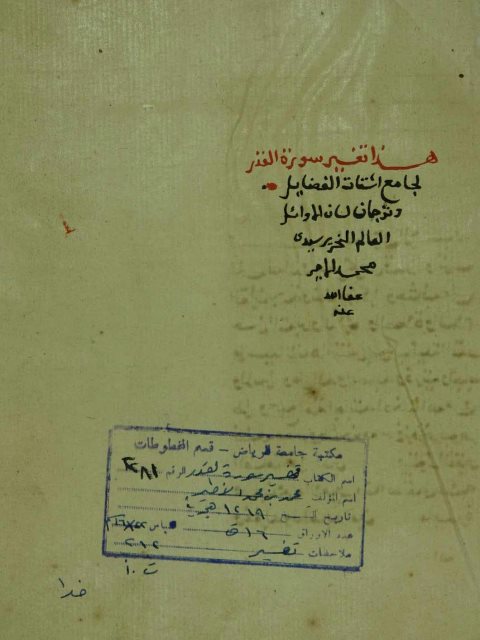 هذا تفسير سورة القدر
لجامع اشتات الفضايل
وترجمان لسان الاوائل
العالم النحرير سيدى
محمد الامير
عفا الله
عنه
مكتبة جامعة الرياض - قسم المخطوطات
اسم الكتاب تفسير سورة القدر الرقم
اسم المؤلف محمد بن محمد الأمير
تاريخ النسخ ١٢١٩ هـ
عدد الاوراق ١٦ ق
ملاحظات تفسير ٢١٢